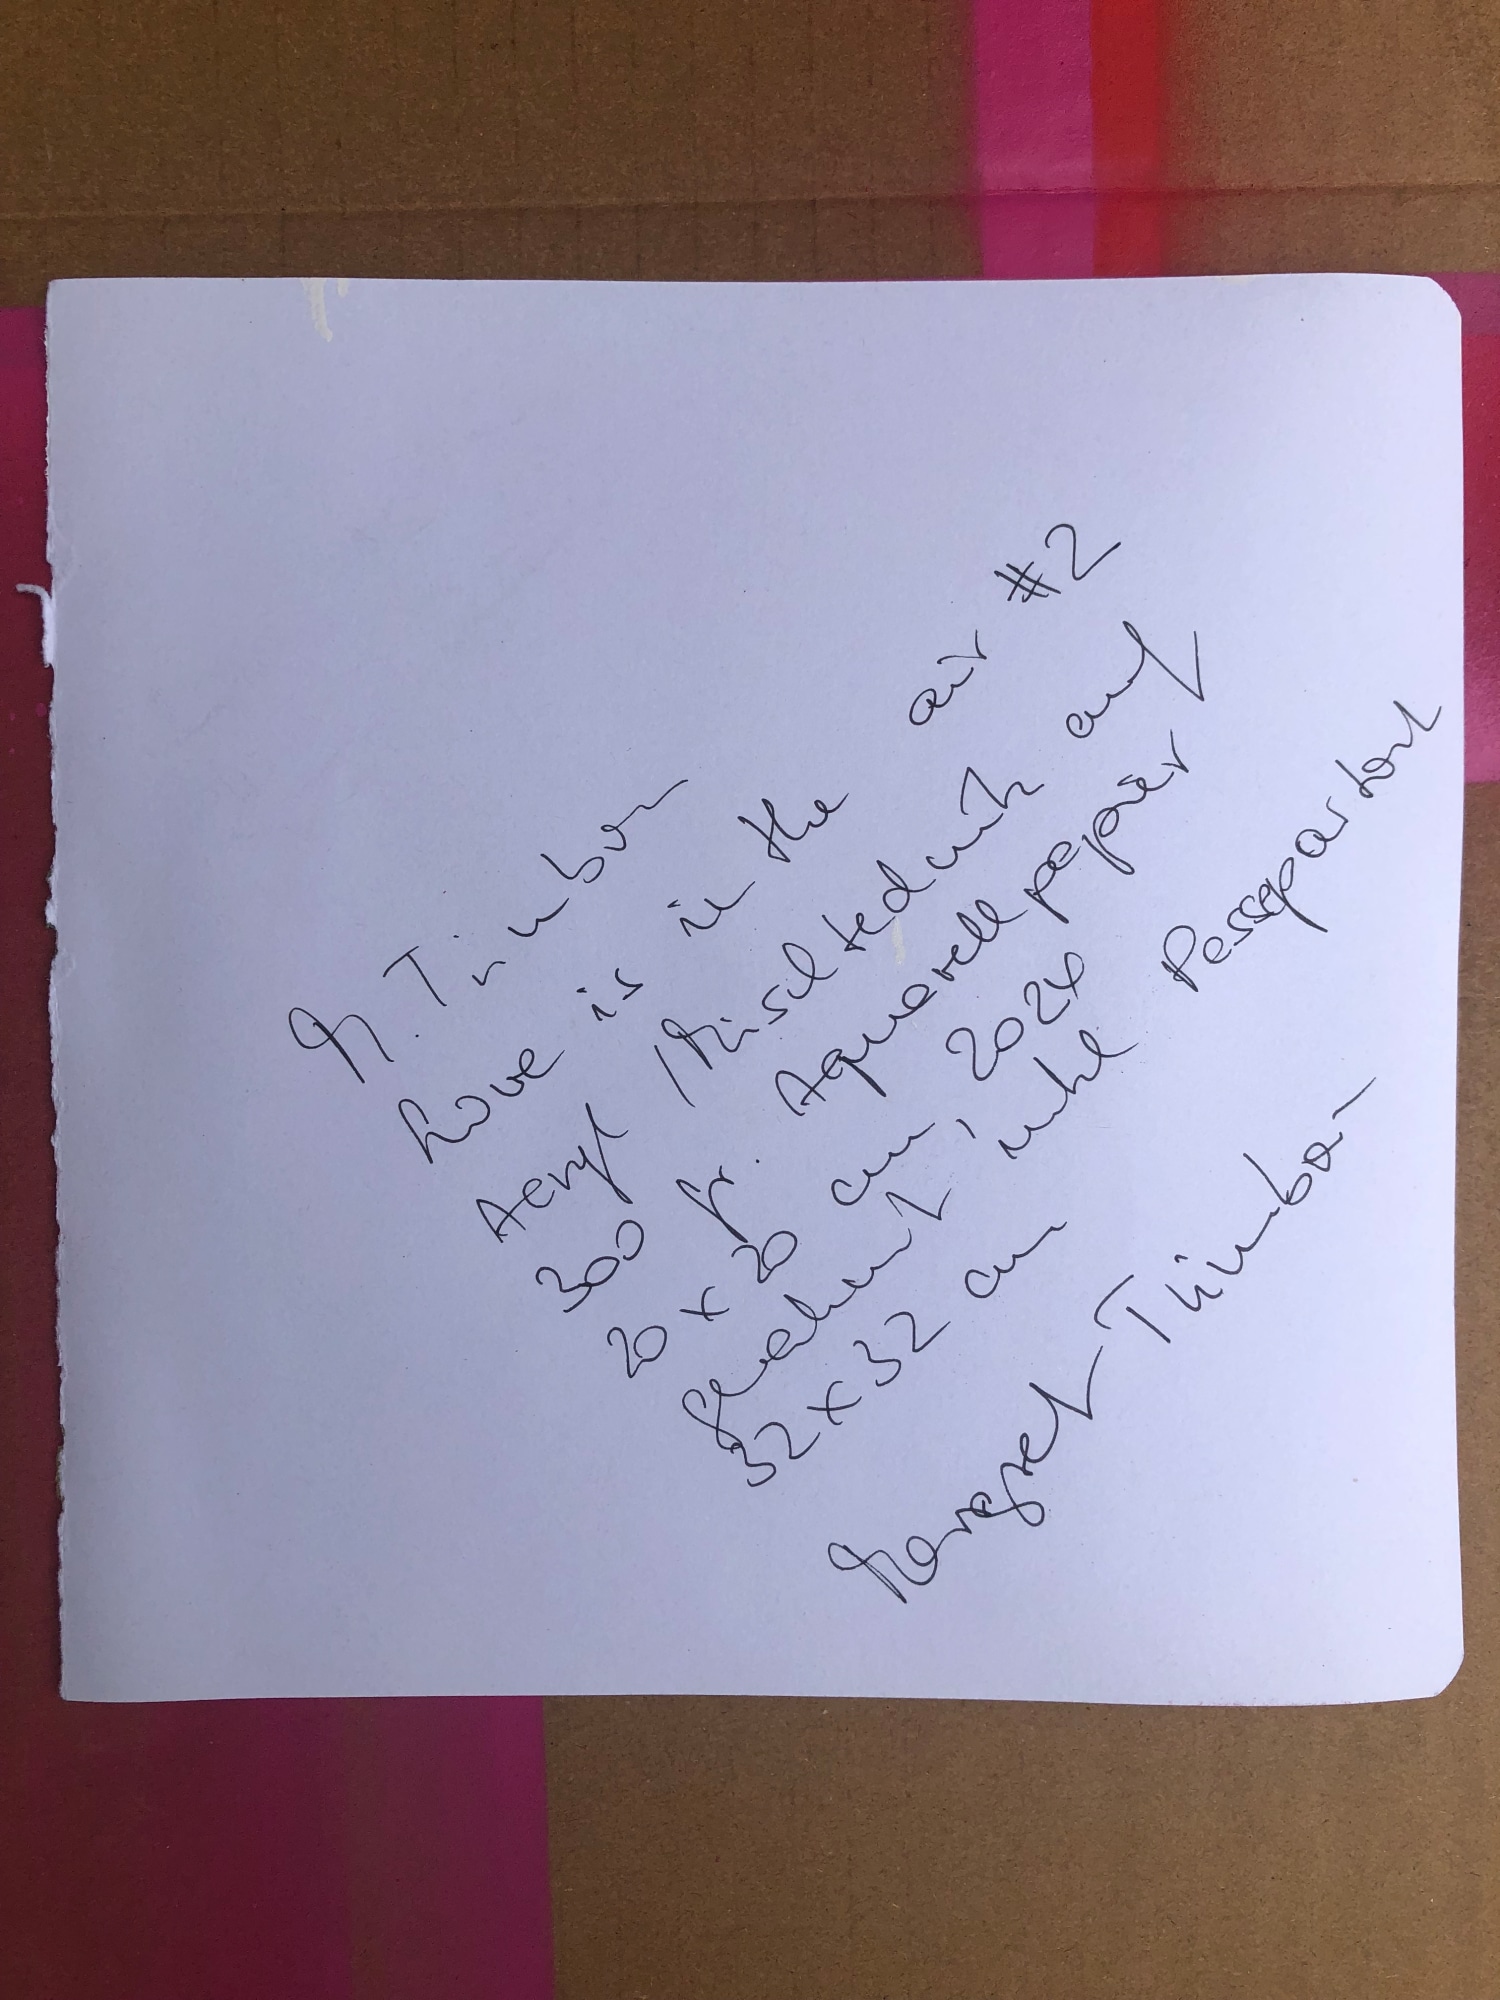 M. Timbon
Love is in the air #2
Acryl / Mischtechnik auf
300 gr. Aquarellpapier
20 x 20 cm, 2024
gerahmt inkl Passepartout
32 x 32 cm
Margret Timbon